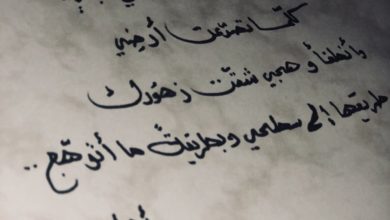 كلما تصدّعت أرضي
وأنطفأ وهجي شقّت زهورك
طريقها إلى سطحي وبطريقةٍ ما أتوهّج ..